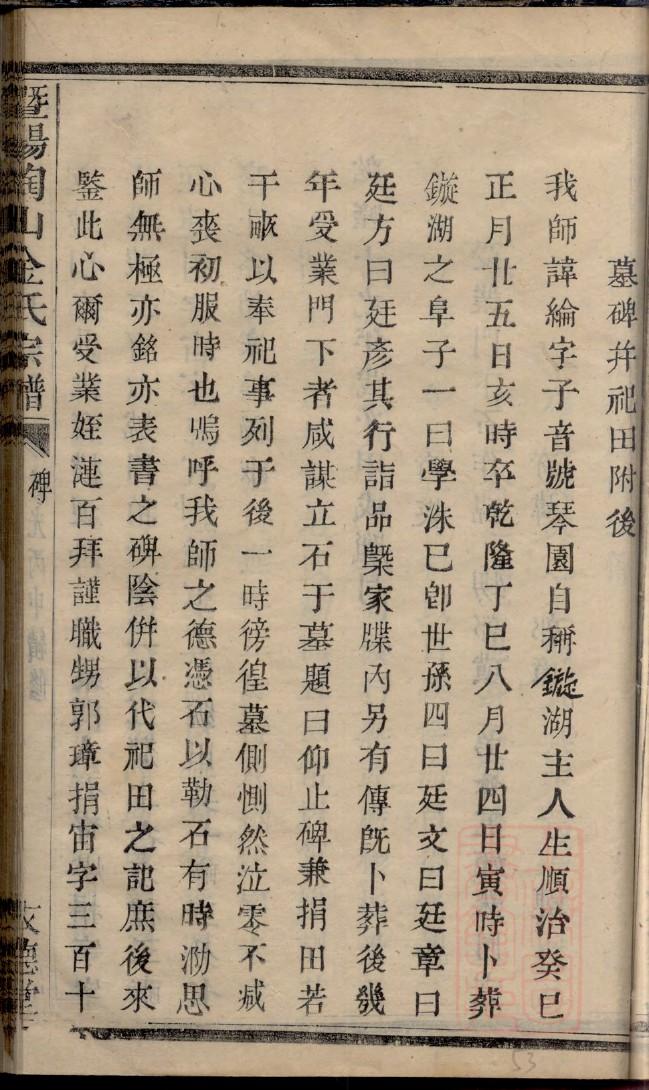 墓碑幷祀田附後
我師諱綸字子音號琴園自稱鏇湖主人生順治癸巳
正月廿五日亥時卒乾隆丁巳八月廿四日寅時卜葬
鏇湖之阜子一曰學洙已卽世孫四曰廷文曰廷章曰
廷方曰廷彥其行詣品槩家牒內另有傳旣卜葬後幾
年受業門下者咸謀立石于墓題曰仰止碑兼捐田若
干畝以奉祀事列于後一時徬徨墓側惻然泣零不減
心喪初服時也嗚呼我師之德憑石以勒石有時泐思
師無極亦銘亦表書之碑陰倂以代祀田之記庶後來
鑒此心爾受業姪漣百拜謹職甥郭璋捐宙字三百十
暨陽陶山金氏宗譜
碑
文德堂
53